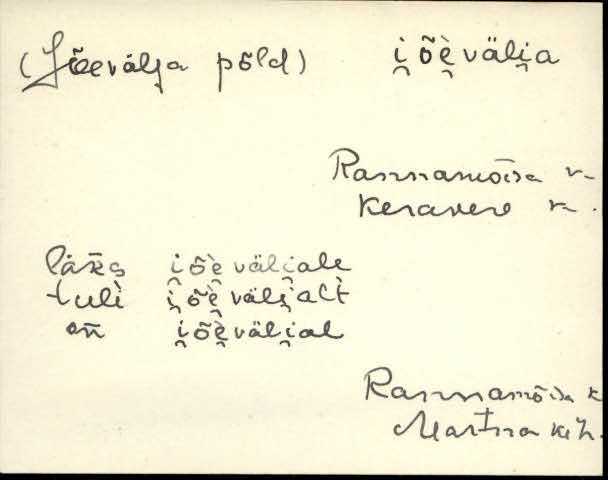 (Jõevälja põld) i̯õè̯väli̯a
Rannamõisa v-
Keravere v-.
läks i̯õè̯väli̯ale
tulì i̯õè̯väli̯alt
on i̯õè̯väli̯al
Rannamõisa k
Martna kih.